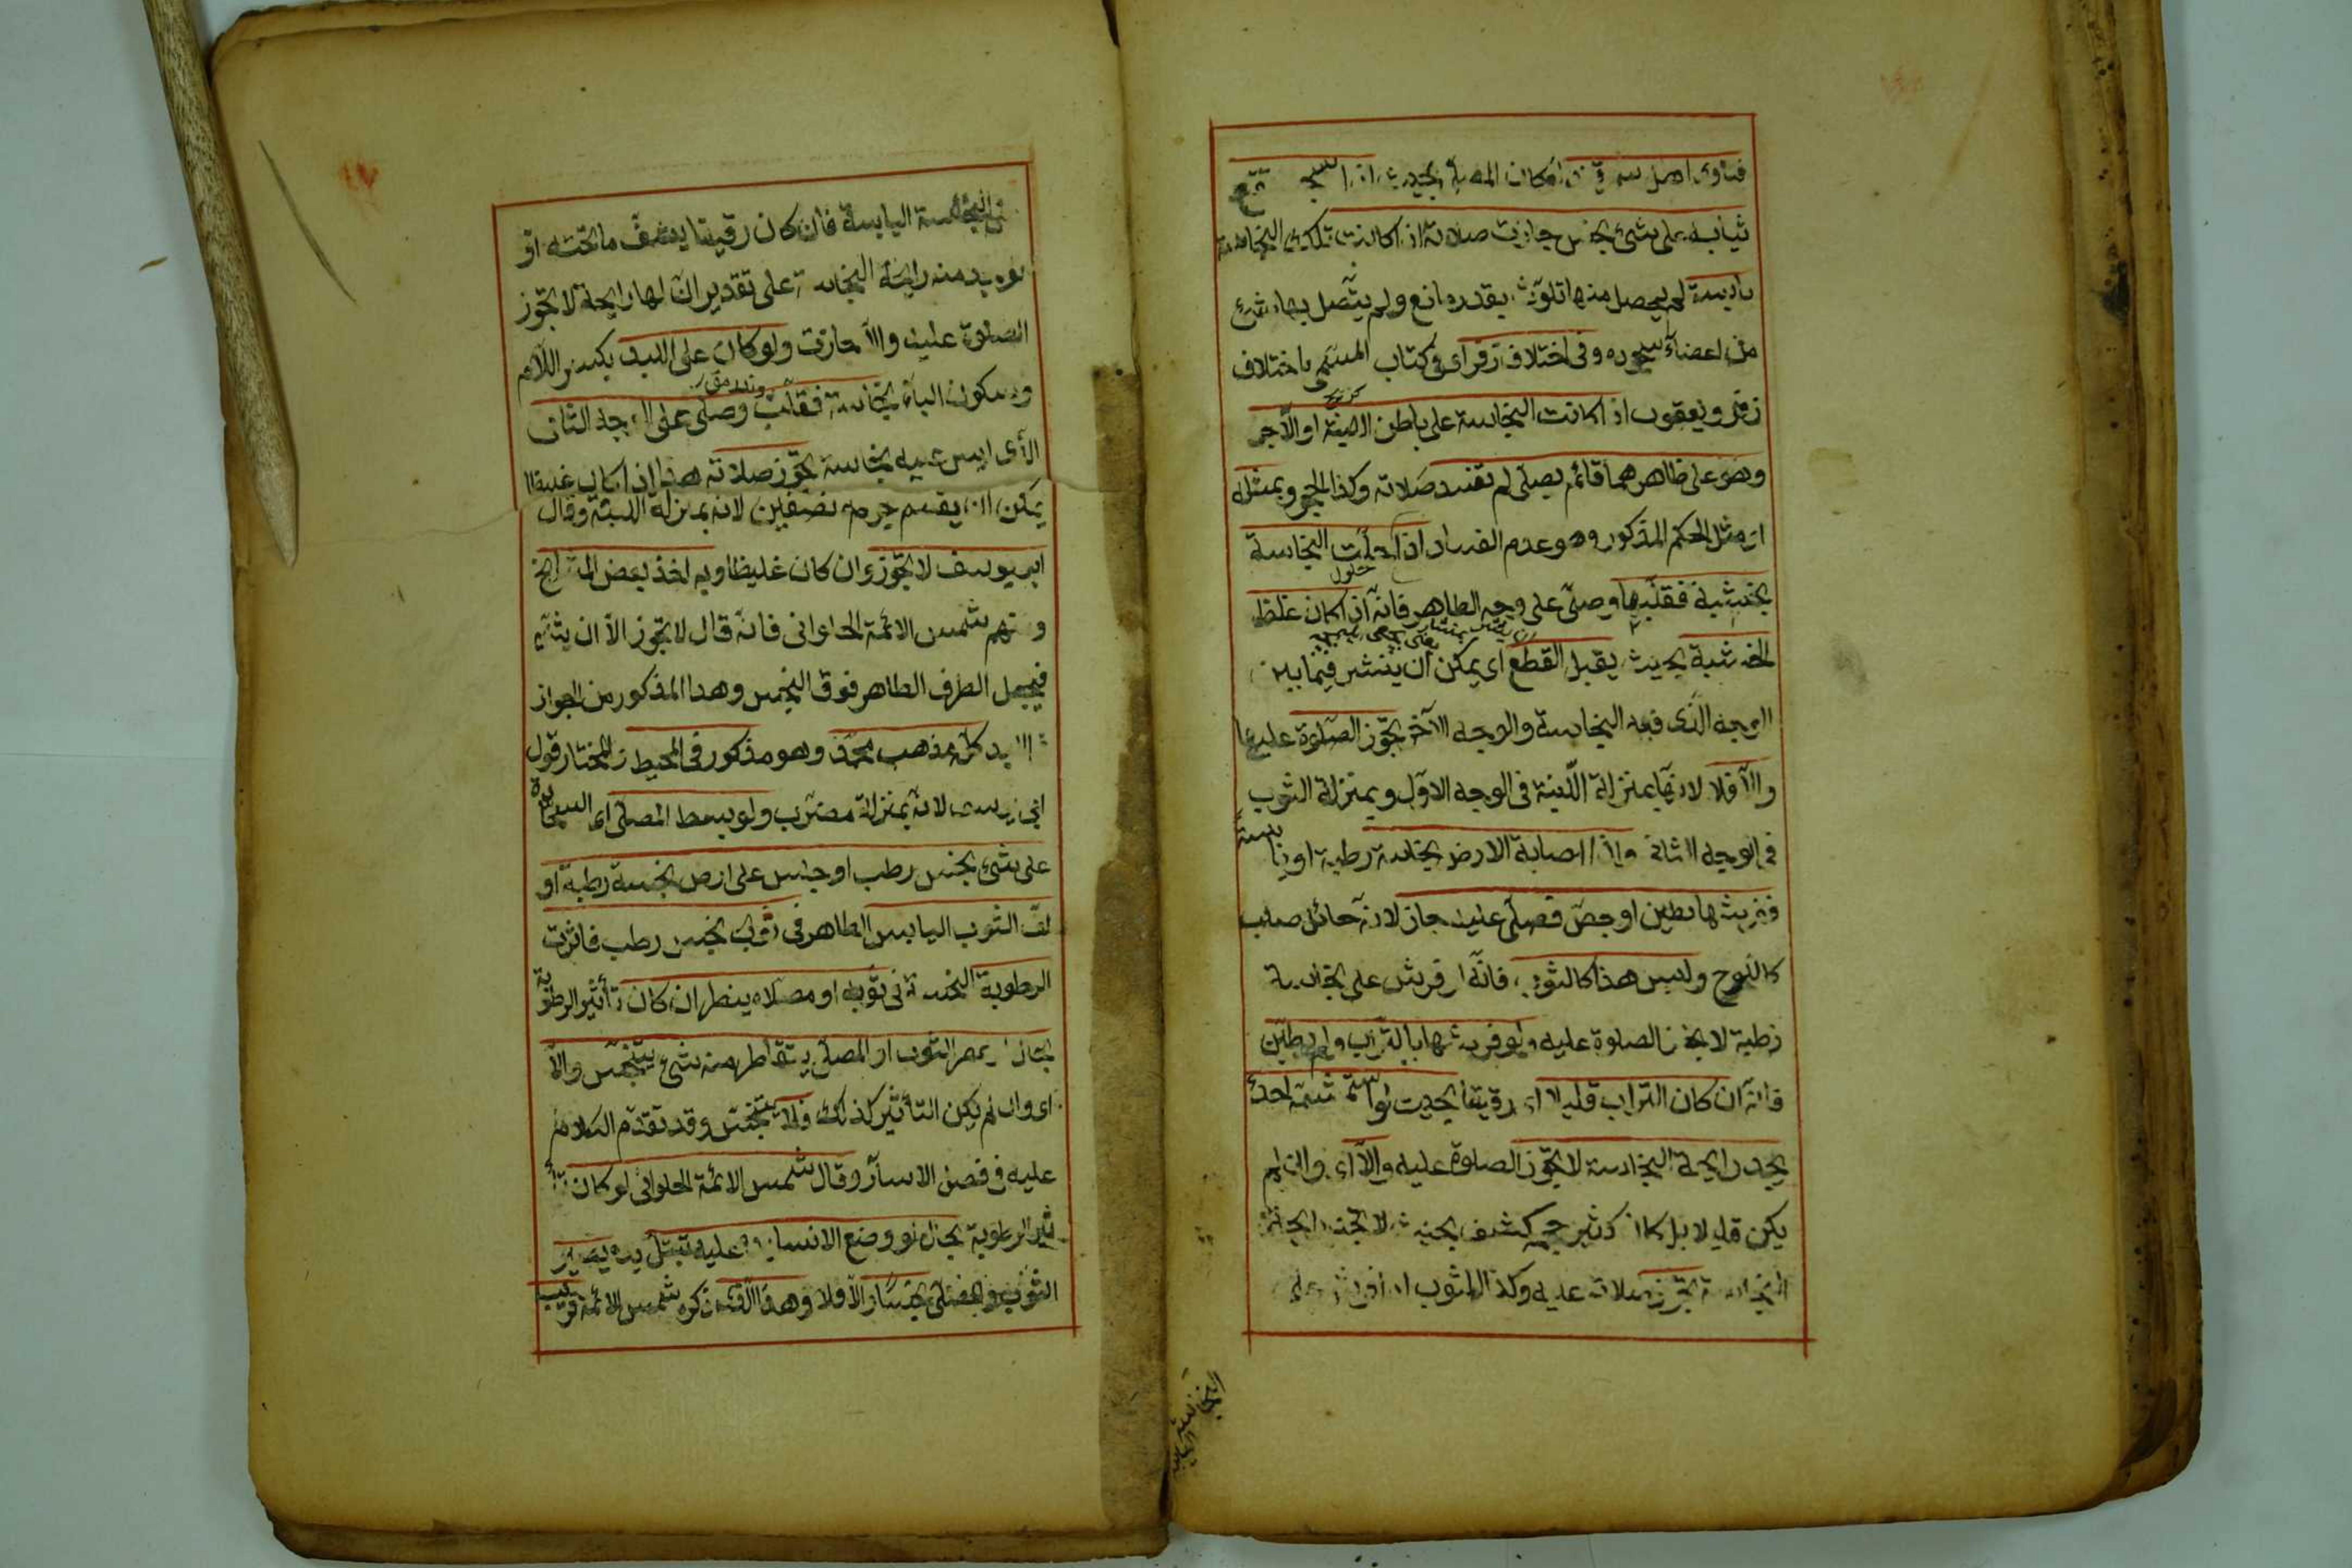 فتاوى اهل سمرقند ان كان المصلي بحيث اذا سجد تقع
ثيابه على شئ نجس جازت صلاته اذا كانت تلك النجاسة
يابسة لم يحصل منها تلوّث بقدر مانع ولم يتّصل بها شئ
من اعضاء سجوده وفي اختلاف زفر اى فى كتاب المسمى باختلاف
زفر ويعقوب اذا كانت النجاسة على باطن اللبنة او الآجر
وهو على ظاهرهما قائم يصلى لم تفسد صلاته وكذا الحجر وبمثله
اى مثل الحكم المذكور وهو عدم الفساد اذا حلّت النجاسة
بخشبة فقلبها وصلّى على وجه الطاهر فانه اذا كان غلظ
الخشبة بحيث يقبل القطع اى يمكن ان ينشر فيما بين
الوجه الذى فيه النجاسة والوجه الآخر تجوّز الصلوة عليها
والّا فلا لانها بمنزلة اللبنة فى الوجه الاوّل وبمنزلة الثوب
فى الوجه الثانى واذا اصابة الارض نجاسة رطبة او يابسة
ففرشها بطين او جصّ فصلّى عليه جاز لانه حائل صلب
كاللوح وليس هذا كالثوب فانه لو فرش على نجاسة
رطبة لا يجوز الصلوة عليه ولو فرشها بالتراب ولم يطيّن
فانه ان كان التراب قليلا اى رقيقا بحيث لو استشمّه احد
يجد رايحة النجاسة لا تجوّز الصلوة عليه والّا اى وان لم
يكن قليلا بل كان كثير حجم كشف بحيث لا يجد رايحة
النجاسة تجوّز صلاته عليه وكذا الثوب اذا فرش على
النجاسة اليابسة
النجاسة اليابسة فان كان رقيقا يشف ما تحته او
توجد منه رايحة النجاسة على تقدير ان لها رايحة لا تجوّز
الصلوة عليه والّا جازت ولو كان على اللبد بكسر اللام
وسكون الباء نجاسة فقلب وصلّى على الوجه الثانى
الذى ليس فيه نجاسة تجوّز صلاته هذا اذا كان غليظا
يمكن ان يقسم جرمه نصفين لانه بمنزلة اللبنة وقال
ابو يوسف لا تجوّز وان كان غليظا وبه اخذ بعض المشايخ
ومنهم شمس الائمة الحلوانى فانه قال لا تجوّز الّا ان يثنيه
فيجعل الطرف الطاهر فوق النجس وهذا المذكور من الجواز
فى اللبد كله مذهب محمّد وهو مذكور فى المحيط والمختار قول
ابى يوسف لانه بمنزلة مضرّب ولو بسط المصلّى اى السجادة
على شئ نجس رطب او جلس على ارض نجسة رطبة او
لفّ الثوب اليابس الطاهر فى ثوب نجس رطب فاثرت
الرطوبة النجسة فى ثوبه او مصلاه ينظر ان كان تأثير الرطوبة
بحال لو عصر الثوب او المصلى يتقاطر منه شئ يتنجّس والّا
اى وان لم يكن التأثير كذلك فلا يتنجّس وقد تقدّم الكلام
عليه فى فصل الاسآر وقال شمس الائمة الحلوانى لو كان تأ
ثير الرطوبة بحال لو وضع الانسان يده عليه تبتلّ يده يصير
الثوب والمصلّى نجسا والّا فلا وهذا الذى ذكره شمس الائمة قريب